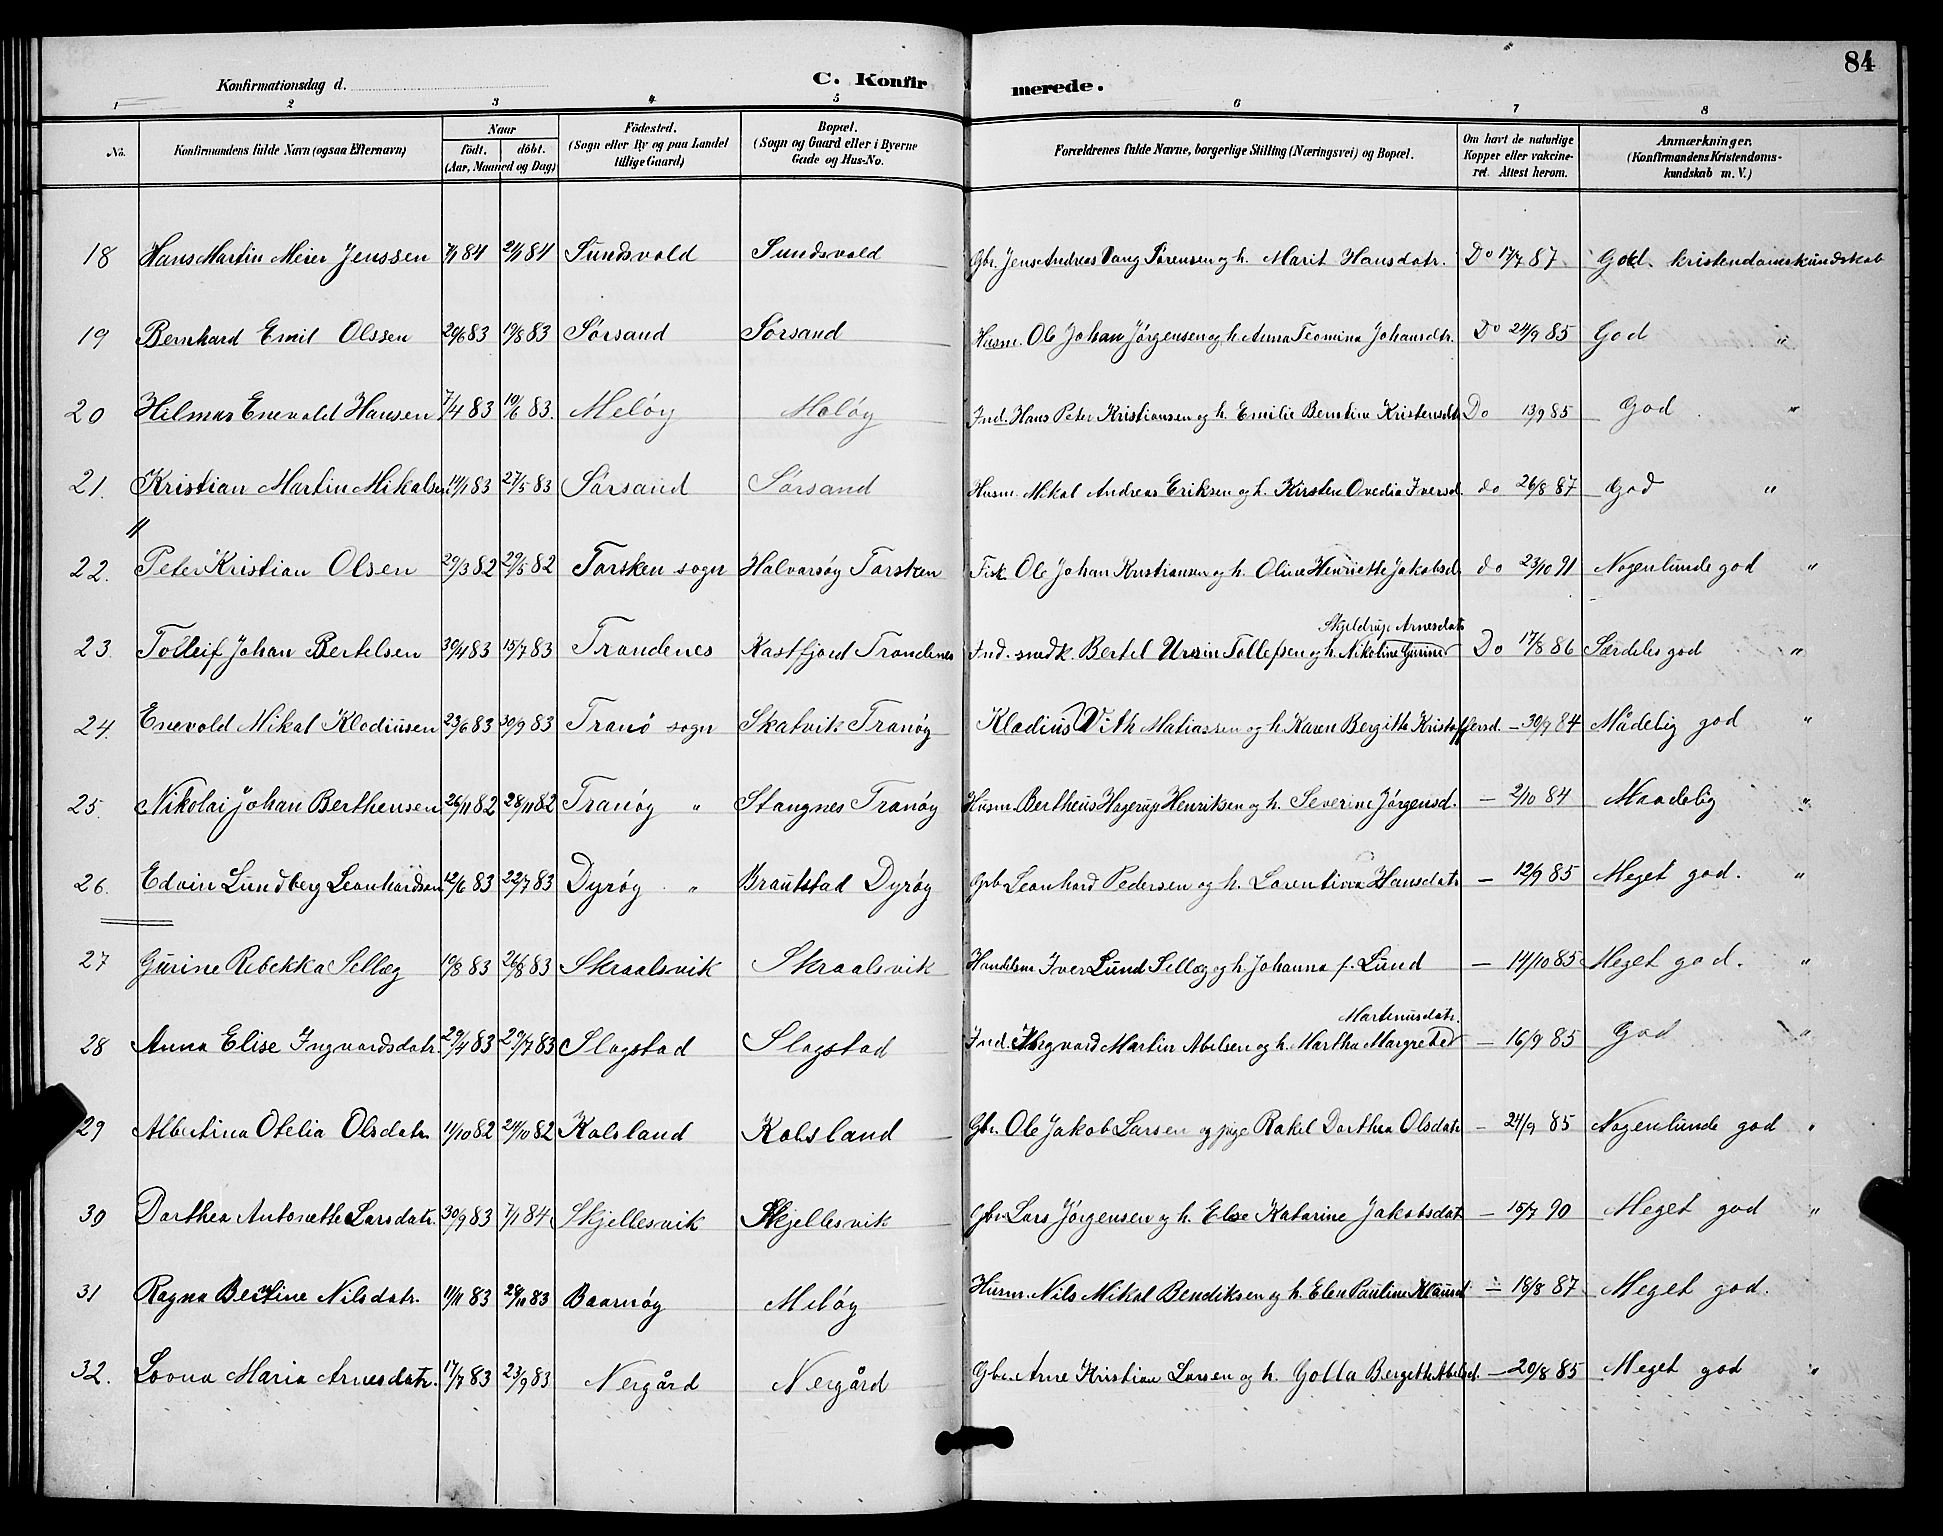 84
Konfirmationsdag d.
C. Konfirmerede.
1 2 3 4 5 6 7 8
No. Konfirmandens fulde Navn (ogsaa Efternavn) Naar födt. döbt. (Aar, Maaned og Dag) Födested. (Sogn eller By og paa Landet tillige Gaard) Bopæl. (Sogn og Gaard eller i Byerne Gade og Hus-No. Forældrenes fulde Navne, borgerlige Stilling (Næringsvei) og Bopæl. Om havt de naturlige Kopper eller vakcineret. Attest herom. Anmærkninger. (Konfirmandens Kristendomskundskab m. V.)
18 Hans Martin Meier Jenssen 7/1 84 21/1 84 Sundsvold Sundsvold Gbr. Jens Andreas Vang Sørensen og h. Marit Hansdatr. Do 17/7 87 God kristendomskundskab
19 Bernhard Emil Olssen 20/6 83 19/8 83 Sørsand Sørsand Husm. Ole Johan Jørgensen og h. Anna Teomina Johansdtr. Do 24/9 85 God "
20 Hilmar Enevold Hansen 7/4 83 10/6 83. Meløy Meløy Ind. Hans Peter Kristiansen og h. Emilie Berntine Kristensdt. Do 13/9 85 God "
21. Kristian Martin Mikalsen 14/1 83 27/5 83 Sørsand Sørsand Husm. Mikal Andreas Eriksen og h. Kirsten Ovedia Iversd. do 26/8 87 God "
22. Peter Kristian Olsen 27/3 82 29/5 82 Torsken sogn Halvarsøy Torsken Fisk. Ole Johan Kristiansen og h. Oline Henriette Jakobsd. do 23/10 91 Nogenlunde god "
Skjeldrup Arnesdatr
23. Tolleif Johan Bertelsen 30/4 83 15/7 83 Trondenes Kastfjord Trondenes Ind. snedk. Bertel Ursin Tollefsen og h. Nikoline Gurine Do 17/8 86 Særdeles god "
24. Enevold Mikal Klodiusen 23/6 83 30/9 83 Tranö sogn Skatvik Tranøy Klodius Vith Matiassen og h. Karen Bergitte Kristoffersd. — 30/7 84 Mådelig god "
25. Nikolai Johan Bertheusen 26/11 82 28/11 82 Tranøy " Stangnes Tranøy Husm. Bertheus Hagerup Henriksen og h. Severine Jørgensd. — 2/10 84 Maadelig "
26. Edvin Lundberg Leonhardsen 12/6 83 22/7 83 Dyrøy " Brautstad Dyrøy Gbr. Leonhard Pedersen og h. Lorentina Hansdatr — 12/9 85 Meget god. "
27 Gurine Rebekka Selleg 19/8 83 26/8 83 Skraalsvik Skraalsvik Handelsm. Iver Lund Selleg og h. Johanna f. Lund — 14/10 85 Meget god. "
Martinusdatr.
28 Anna Elise Ingvardsdatr. 29/4 83 29/7 83 Slagstad Slagstad Ind. Ingvard Martin Abelsen og h. Martha Margrete — 16/9 85 God "
29 Albertina Otelia Olsdatr. 11/10 82 24/10 82 Kolsland Kolsland Gbr. Ole Jakob Larsen og pige Rakel Dorthea Olsdatr — 24/9 85 Nogenlunde god "
30 Dorthea Antonette Larsdatr. 30/9 83 7/1 84 Skjellesvik Skjellesvik Gbr. Lars Jørgensen og h. Else Katarine Jakobsdat — 15/7 90 Meget god "
31 Ragna Bertine Nilsdatr. 11/11 83 29/11 83 Baarnøy Meløy Husm. Nils Mikal Bendiksen og h. Elen Pauline Klausd — 18/8 87 Meget god.
32. Lovna Maria Arnesdatr. 17/7 83 23/9 83 Nergård Nergård Gbr. Arne Kristian Larsen og h. Golla Bergitte Abelsd. — 20/8 85 Meget god "